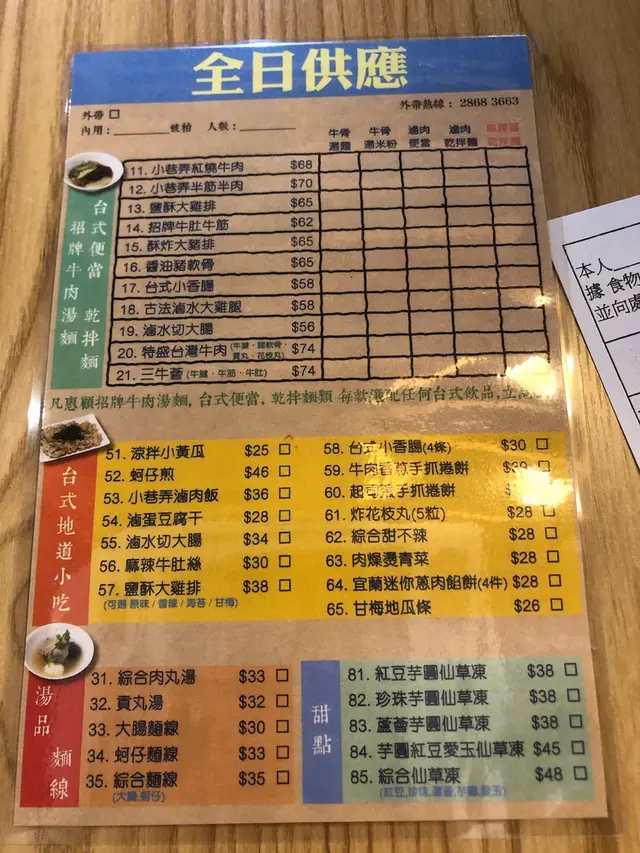 全日供應
外帶 □
外帶熱線: 2868 3663
內用: 號枱 人數:
牛骨湯麵 牛骨湯米粉 滷肉便當 滷肉乾拌麵 乾拌麵
台式便當 乾拌麵
招牌牛肉湯麵
11. 小巷弄紅燒牛肉 $68
12. 小巷弄半筋半肉 $70
13. 鹽酥大雞排 $65
14. 招牌牛肚牛筋 $62
15. 酥炸大豬排 $65
16. 醬油豬軟骨 $65
17. 台式小香腸 $58
18. 古法滷水大雞腿 $58
19. 滷水切大腸 $56
20. 特盛台灣牛肉 (牛腱、豬軟骨、貢丸、花枝丸) $74
21. 三牛薈 (牛腱、牛筋、牛肚) $74
凡惠顧招牌牛肉湯麵, 台式便當, 乾拌麵類 每款選配任何台式飲品,立
台式地道小吃
51. 涼拌小黃瓜 $25 □
52. 蚵仔煎 $46 □
53. 小巷弄滷肉飯 $36 □
54. 滷蛋豆腐干 $28 □
55. 滷水切大腸 $34 □
56. 麻辣牛肚絲 $30 □
57. 鹽酥大雞排 $38 □
(可選 原味 / 香辣 / 海苔 / 甘梅)
58. 台式小香腸(4條) $30 □
59. 牛肉香蔥手抓捲餅 □
60. 起司 手抓捲餅 □
61. 炸花枝丸(5粒) $28 □
62. 綜合甜不辣 $28 □
63. 肉燥燙青菜 $28 □
64. 宜蘭迷你蔥肉餡餅(4件) $28 □
65. 甘梅地瓜條 $26 □
湯品 麵線
31. 綜合肉丸湯 $33 □
32. 貢丸湯 $32 □
33. 大腸麵線 $30 □
34. 蚵仔麵線 $33 □
35. 綜合麵線 $35 □
(大腸,蚵仔)
甜點
81. 紅豆芋圓仙草凍 $38 □
82. 珍珠芋圓仙草凍 $38 □
83. 蘆薈芋圓仙草凍 $38 □
84. 芋圓紅豆愛玉仙草凍 $45 □
85. 綜合仙草凍 $48 □
(紅豆,珍珠,蘆薈,芋圓,愛玉)
本人
據 食物
並向處